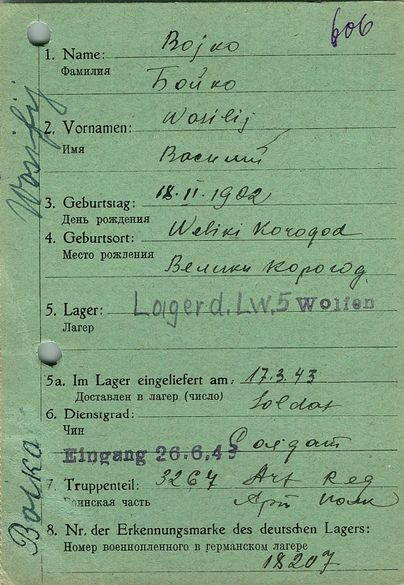 606
1. Name: Bojko
Фамилия Бойко
2. Vornamen: Wasilij
Имя Василий
3. Geburtstag: 18.II.1902
День рождения
4. Geburtsort: Weliki Korogod
Место рождения Велики Корогод
5. Lager: Lager d. Lw. 5 Wolfen
Лагерь
5a. Im Lager eingeliefert am: 17.3.43
Доставлен в лагерь (число)
6. Dienstgrad: Soldat
Чин Солдат
Eingang 26.6.43
7. Truppenteil: 3267 Art Reg
Воинская часть Арт полк
8. Nr. der Erkennungsmarke des deutschen Lagers:
Номер военнопленного в германском лагере
18207